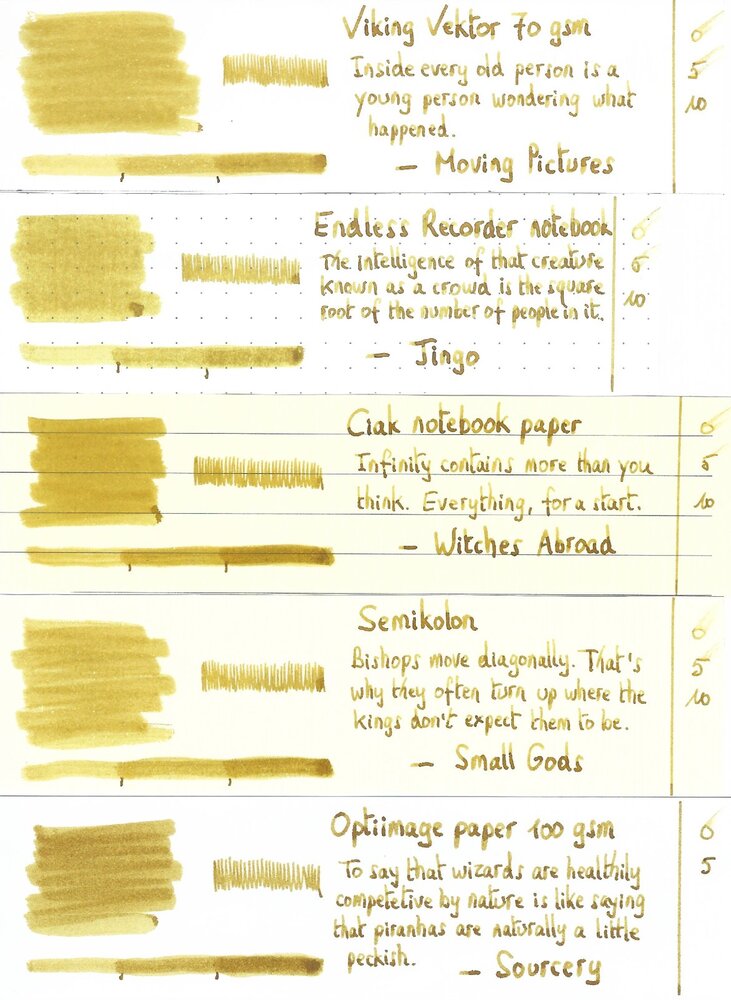 Viking Vektor 70 gsm
Inside every old person is a
young person wondering what
happened.
— Moving Pictures
0
5
10
Endless Recorder notebook
The intelligence of that creature
known as a crowd is the square
root of the number of people in it.
— Jingo
0
5
10
Ciak notebook paper
Infinity contains more than you
think. Everything, for a start.
— Witches Abroad
0
5
10
Semikolon
Bishops move diagonally. That's
why they often turn up where the
kings don't expect them to be.
— Small Gods
0
5
10
Optiimage paper 100 gsm
To say that wizards are healthily
competetive by nature is like saying
that piranhas are naturally a little
peckish.
— Sourcery
0
5